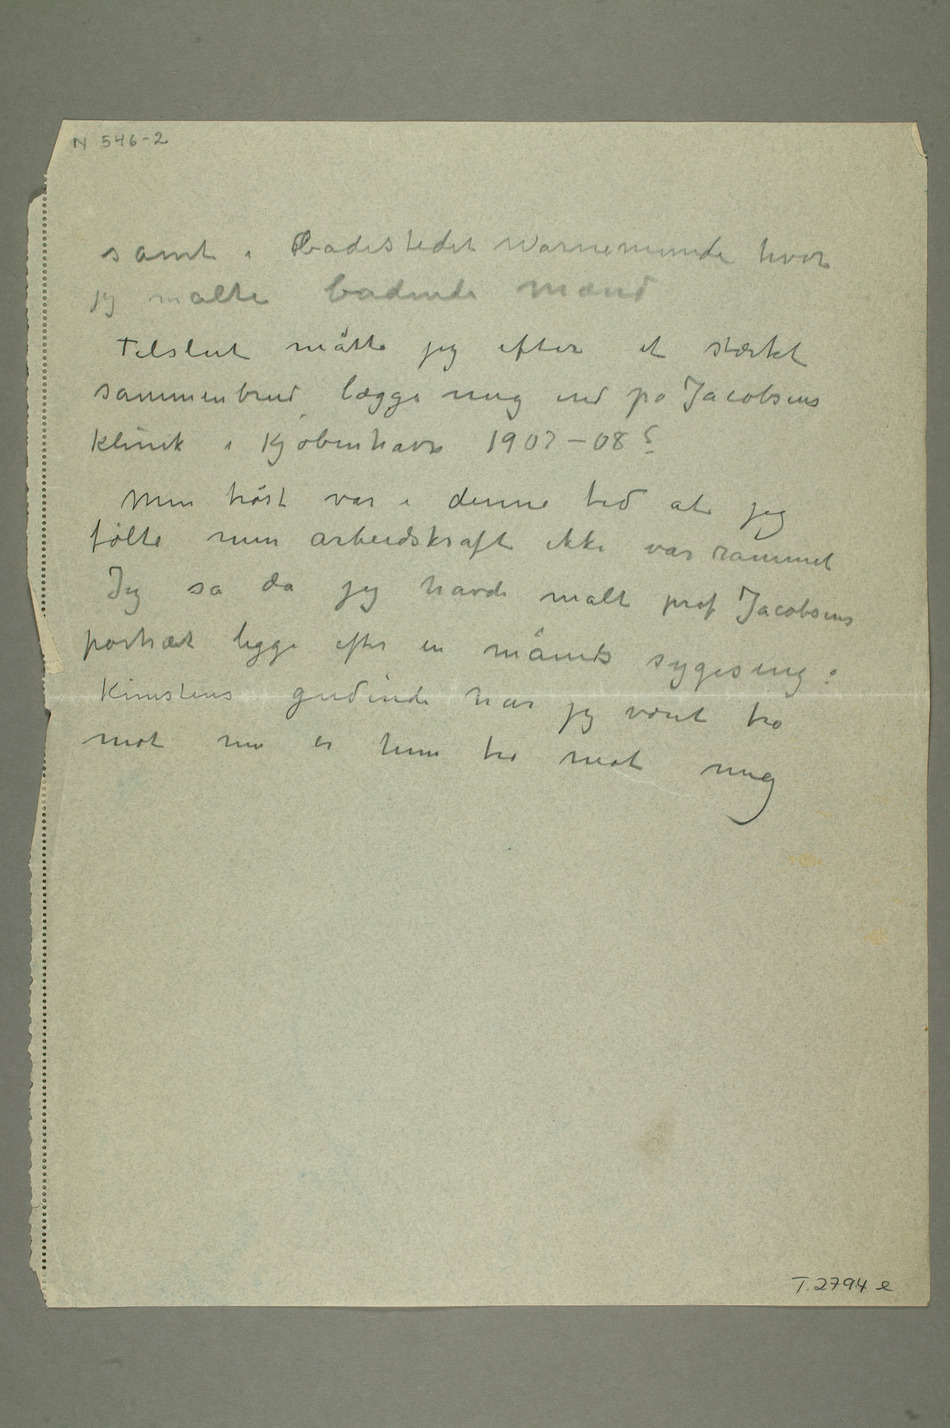 N 546-2
samt i Badestedet Warnemunde hvor
jeg malte badende mænd
Tilslut måtte jeg efter et stærkt
sammenbrud lægge mig ind på Jacobsens
Klinik i Kjøbenhavn 1907–08?
Min trøst var i denne tid at jeg
følte min arbeidskraft ikke var rammet
Jeg sa da jeg havde malt prof Jacobsens
portræt ligge efter en måneds sygeseng:
Kunstens gudinde har jeg været tro
mot nu er hun tro mot mig
T.2794 e